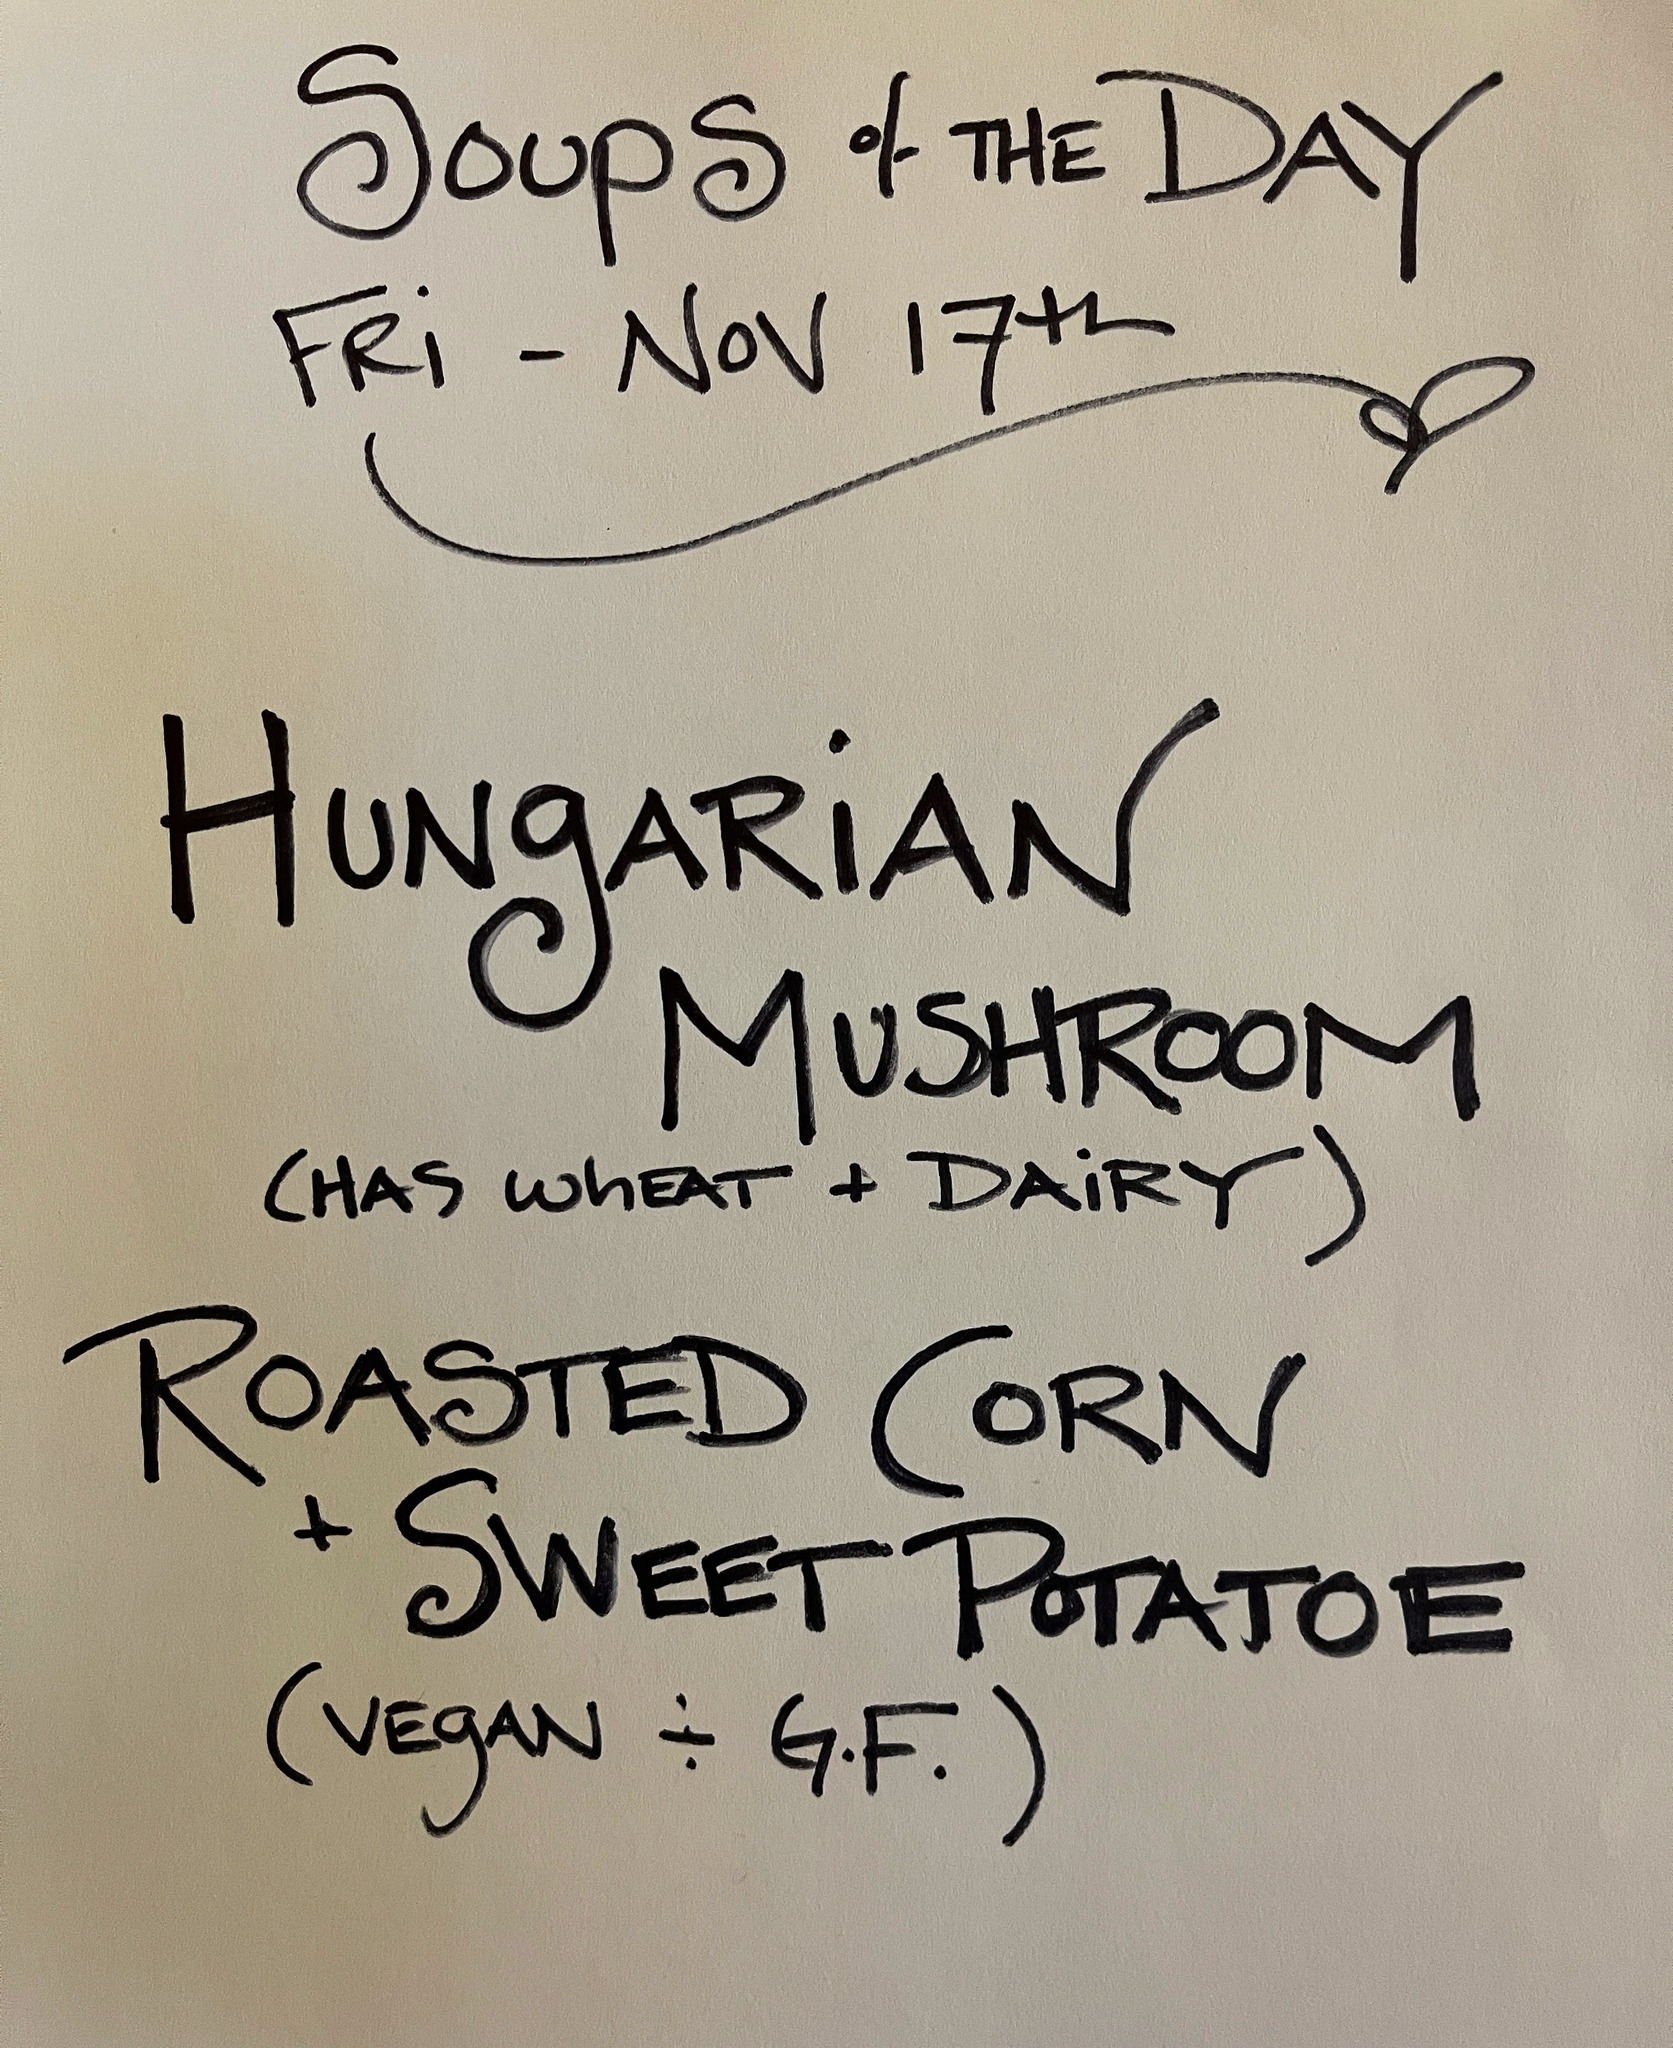 Soups of THE DAY
FRi - NOV 17th
HUNgARiAN
MUSHROOM
(HAS WhEAT + DAiRY)
ROASTED CORN
+ SWEET POTATOE
(VEgAN ÷ G.F.)